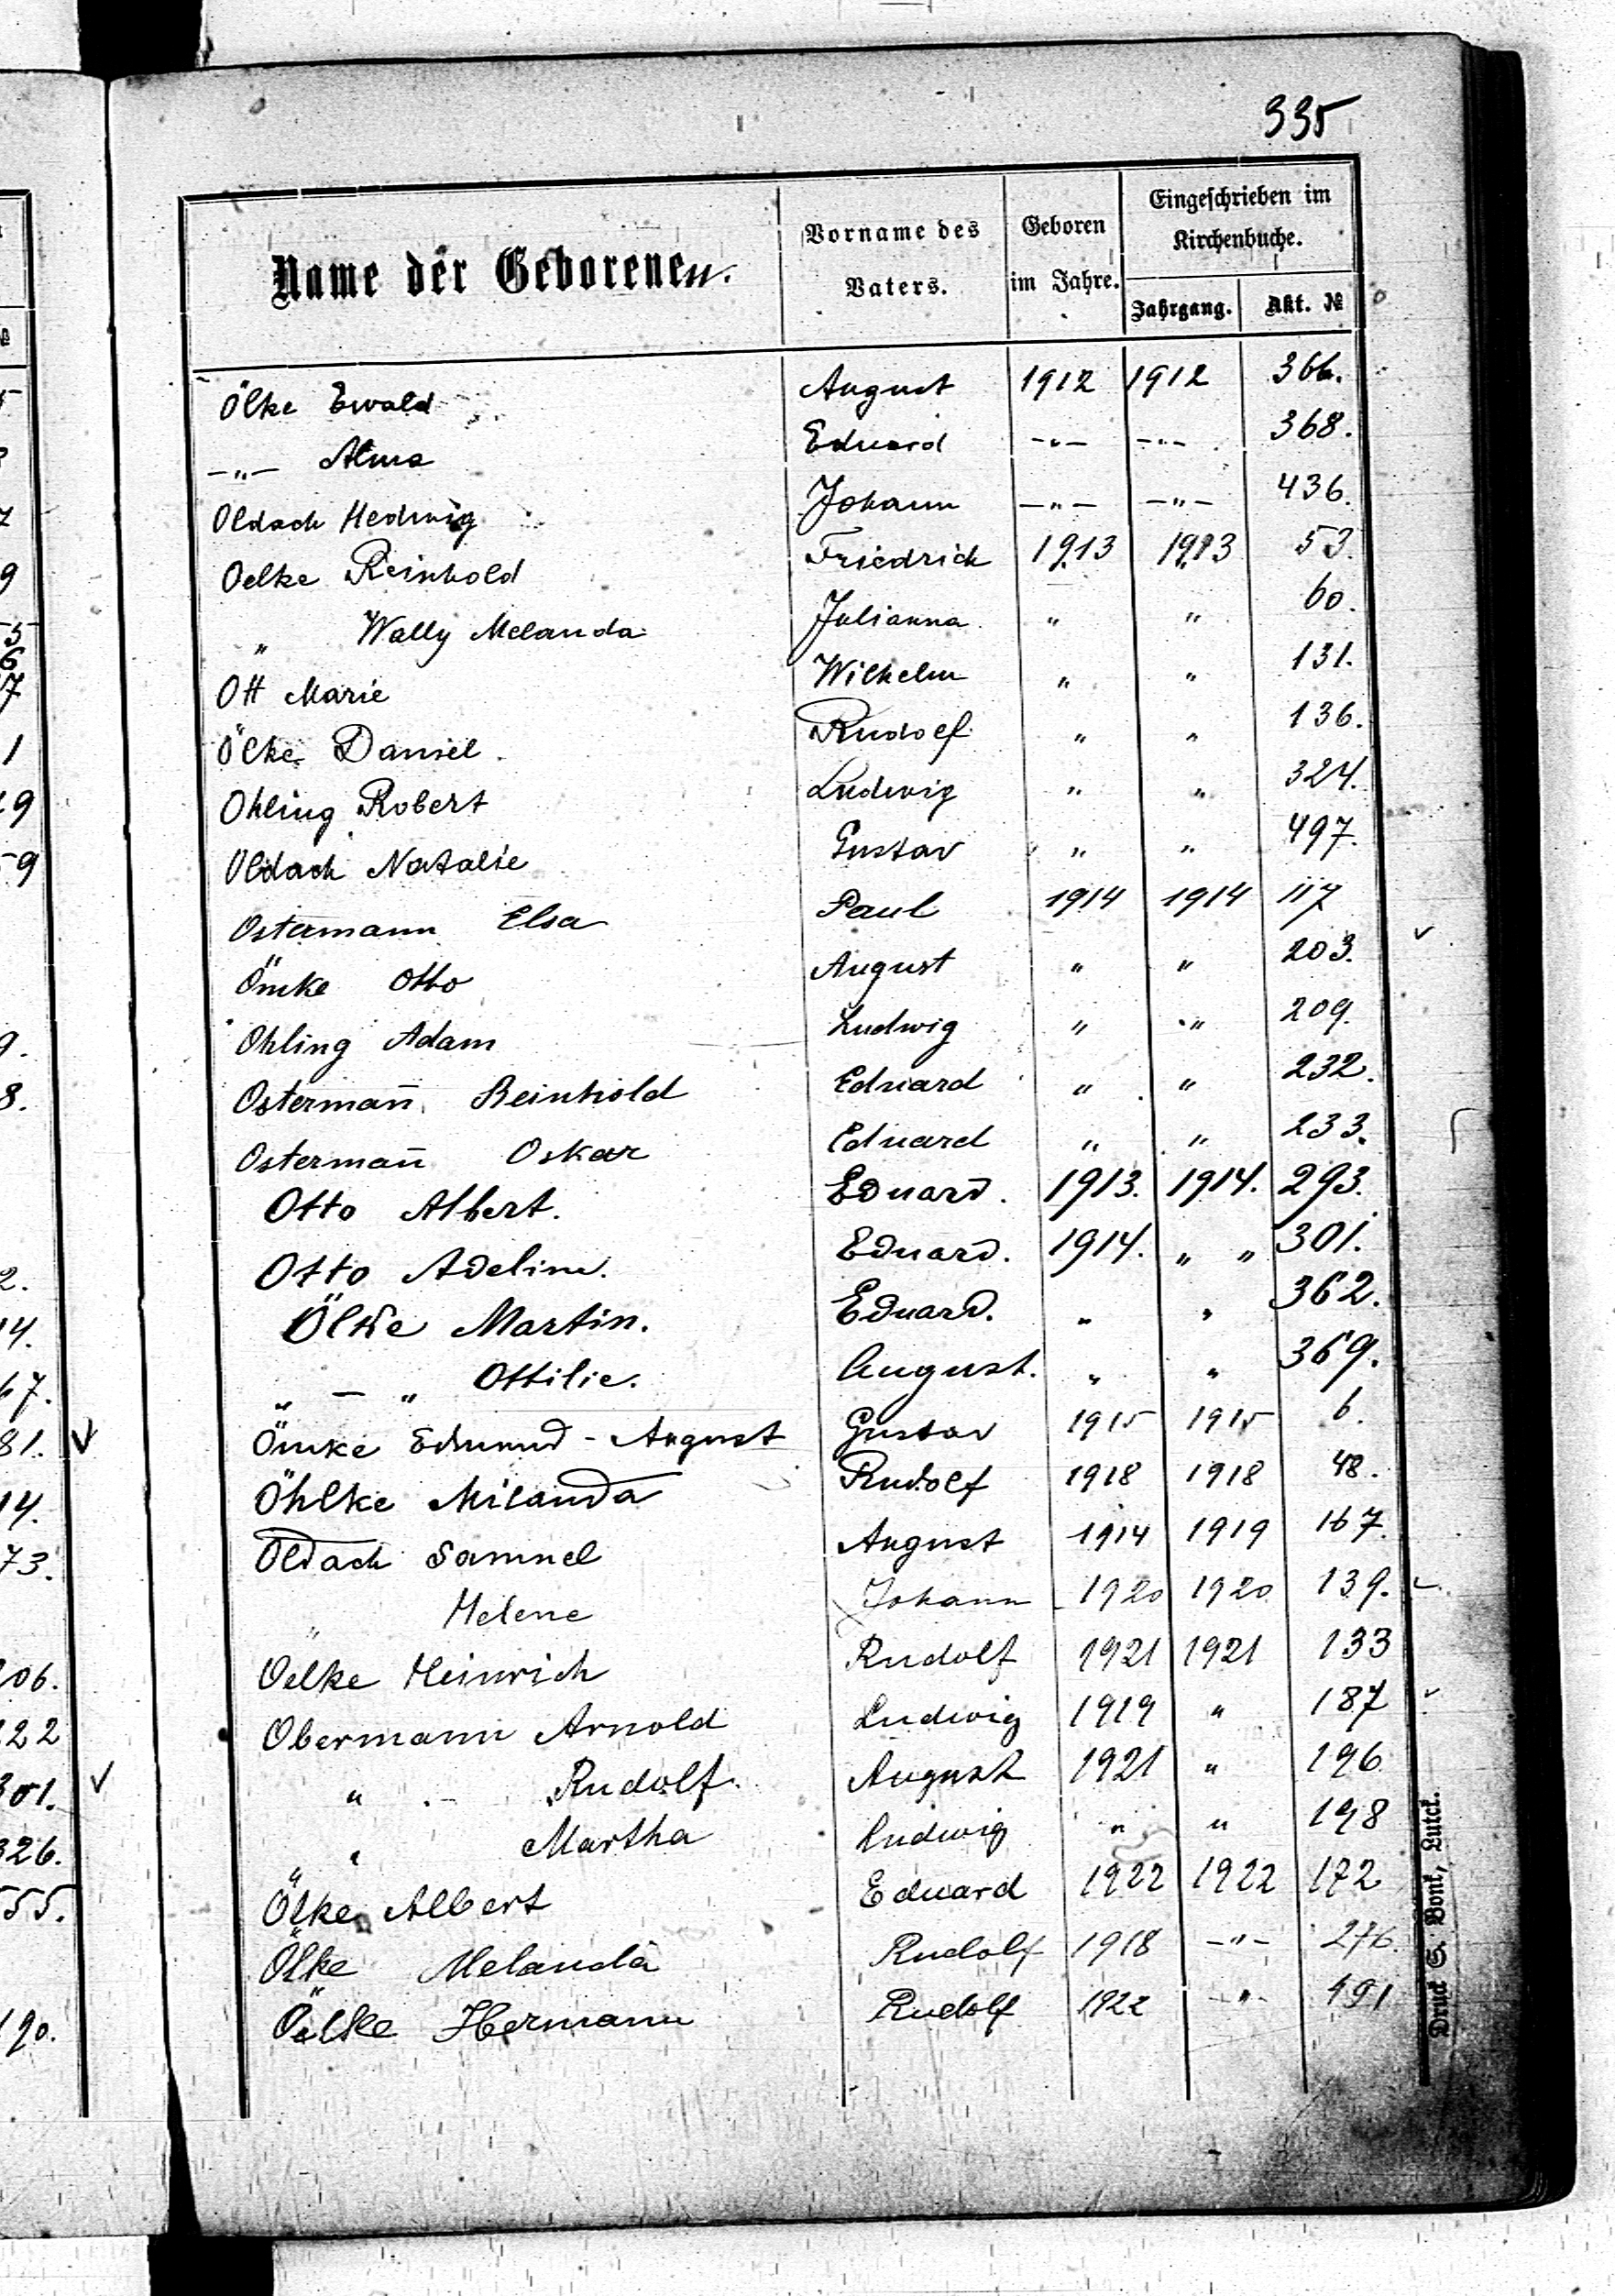 335
Name der Geborenen. Vorname des Vaters. Geboren im Jahre. Eingeschrieben im Kirchenbuche. Jahrgang. Akt. №
Ölke Ewald August 1912 1912 366.
-"- Alma Eduard -"- -"- 368.
Oldach Hedwig Johann -"- -"- 436.
Oelke Reinhold Friedrich 1913 1913 53.
" Wally Melanda Julianna " " 60.
Ott Marie Wilhelm " " 131.
Ölke Daniel. Rudolf " " 136.
Ohling Robert Ludwig " " 324.
Oldach Natalie Gustav " " 497.
Ostermann Elsa Paul 1914 1914 117
Ömke Otto August " " 203.
Ohling Adam Ludwig " " 209.
Ostermañ Reinhold Eduard " " 232.
Ostermañ Oskar Eduard " " 233.
Otto Albert. Eduard. 1913. 1914. 293.
Otto Adeline. Eduard. 1914. " " 301.
Ölke Martin. Eduard. " " 362.
" - " Ottilie. August. " " 369.
Ömke Edmund - August Gustav 1915 1915 6.
Öhlke Milanda Rudolf 1918 1918 48.
Oldach Samuel August 1914 1919 167.
" Helene Johann 1920 1920 139.
Oelke Heinrich Rudolf 1921 1921 133
Obermann Arnold Ludwig 1919 " 187
" Rudolf. August 1921 " 196
" Martha Ludwig " " 198
Ölke Albert Eduard 1922 1922 172
Ölke Melanda Rudolf 1918 -"- 276.
Ölke Hermann Rudolf 1922 -"- 491
Druck S. Bönk, Lutck.